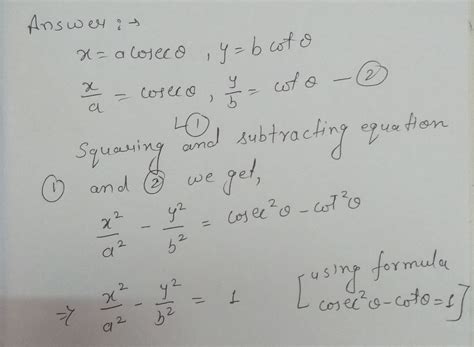 Answer :→
x = a cosec θ , y = b cot θ
x/a = cosec θ , y/b = cot θ — ②
↳ ①
Squaring and subtracting equation
① and ② we get,
x²/a² - y²/b² = cosec²θ - cot²θ
⇒ x²/a² - y²/b² = 1 [using formula
cosec²θ - cotθ = 1]